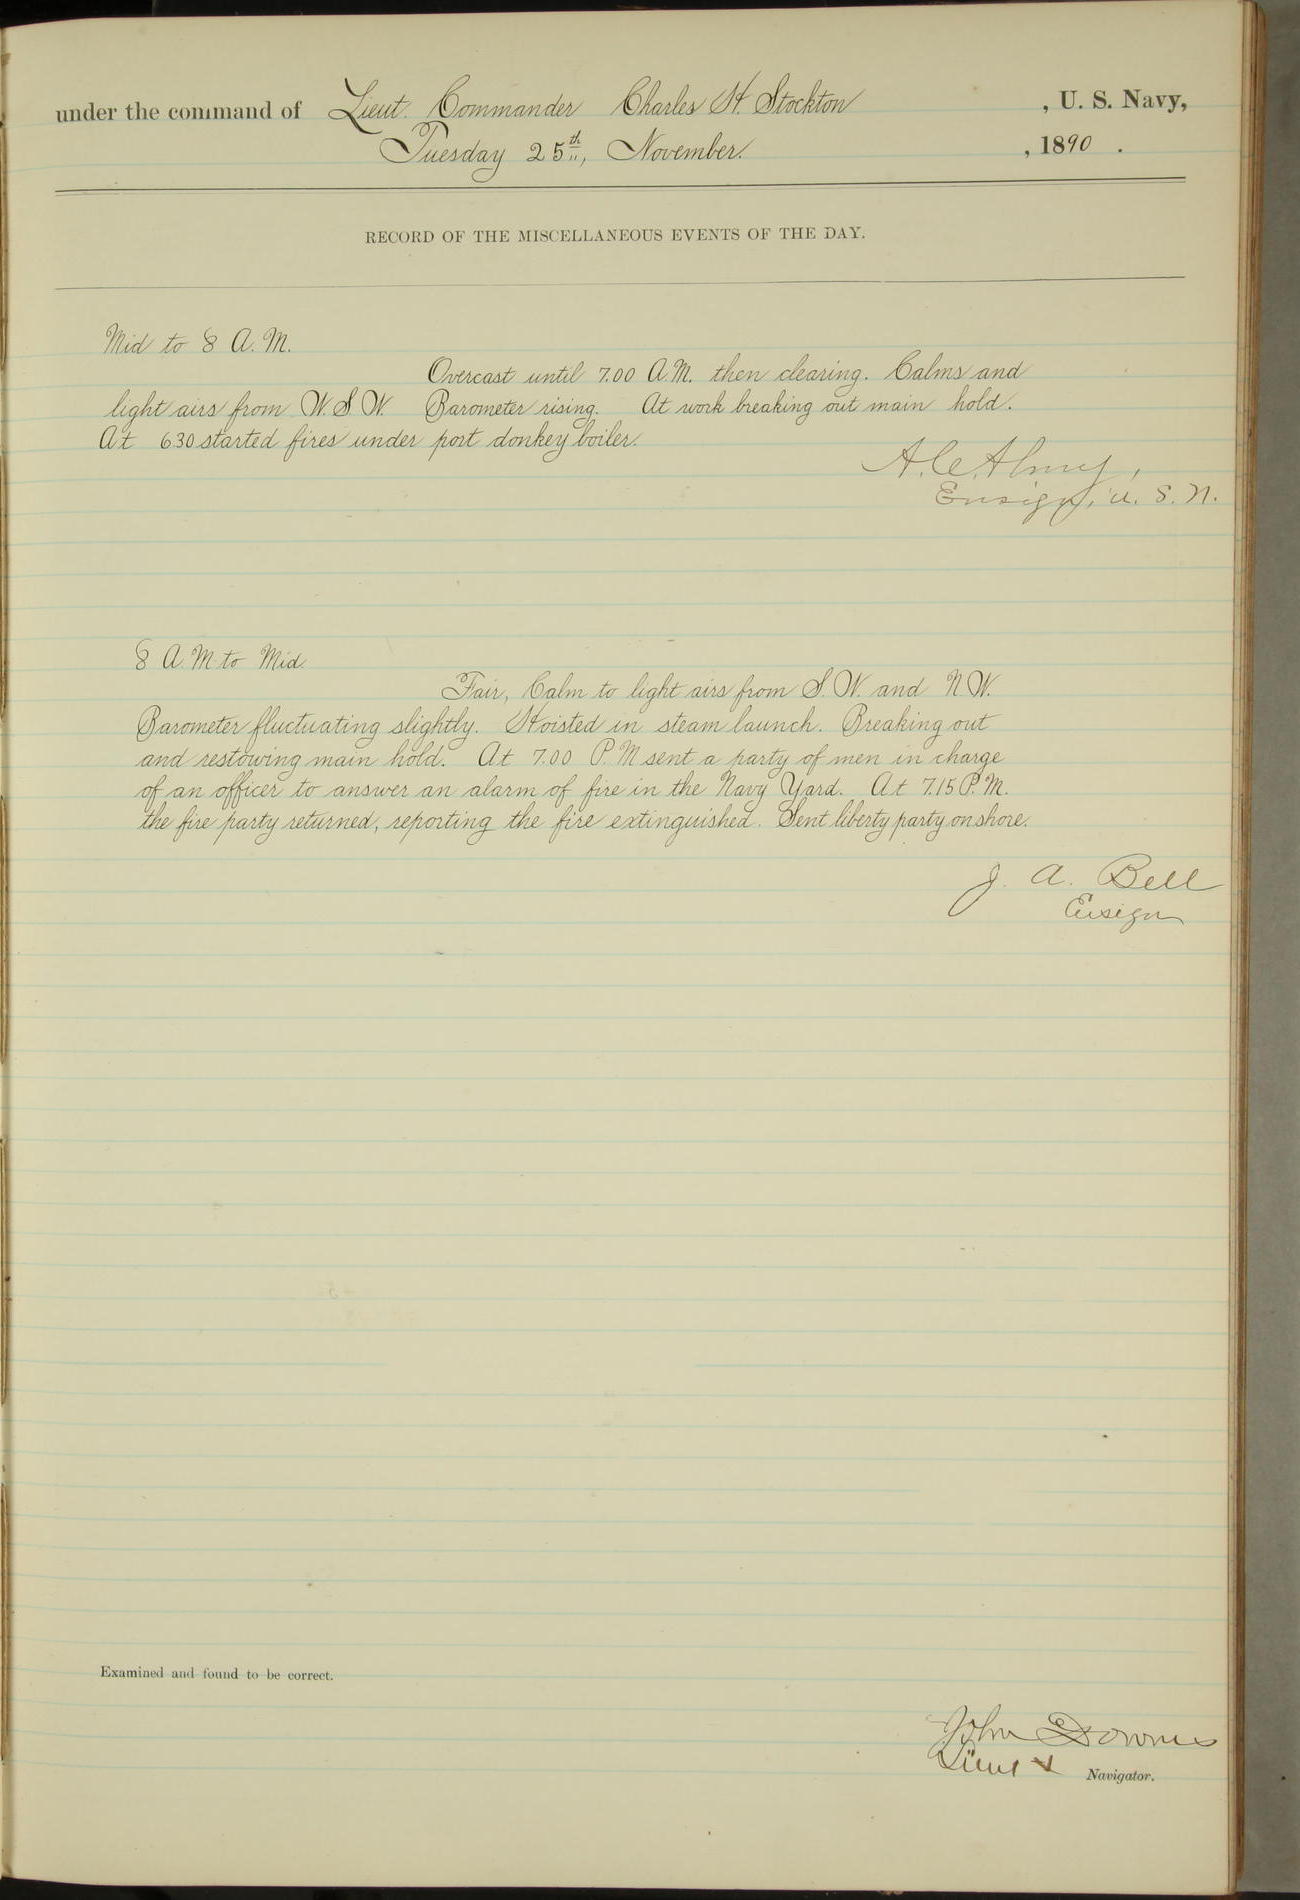 under the command of Lieut. Commander Charles H. Stockton , U. S. Navy,
Tuesday 25th, November. , 1890 .
RECORD OF THE MISCELLANEOUS EVENTS OF THE DAY.
Mid to 8 A.M.
Overcast until 7.00 A.M. then clearing. Calms and
light airs from W.S.W. Barometer rising. At work breaking out main hold.
At 6.30 started fires under port donkey boiler.
A. C. Almy,
Ensign, U. S. N.
8 A.M to Mid
Fair, Calm to light airs from S.W. and N.W.
Barometer fluctuating slightly. Hoisted in steam launch. Breaking out
and restowing main hold. At 7.00 P.M sent a party of men in charge
of an officer to answer an alarm of fire in the Navy Yard. At 7.15 P.M.
the fire party returned, reporting the fire extinguished. Sent liberty party on shore.
J. A. Bell
Ensign
Examined and found to be correct.
John Downes
Lieut & Navigator.